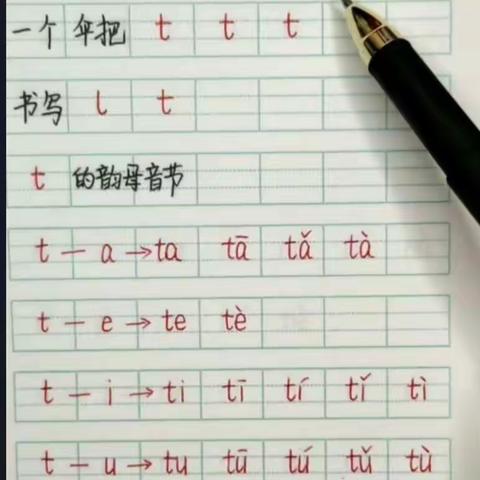 一个 伞把 t t t
书写 l t
t 的韵母音节
t — a → ta tā tǎ tà
t — e → te tè
t — i → ti tī tí tǐ tì
t — u → tu tū tú tǔ tù